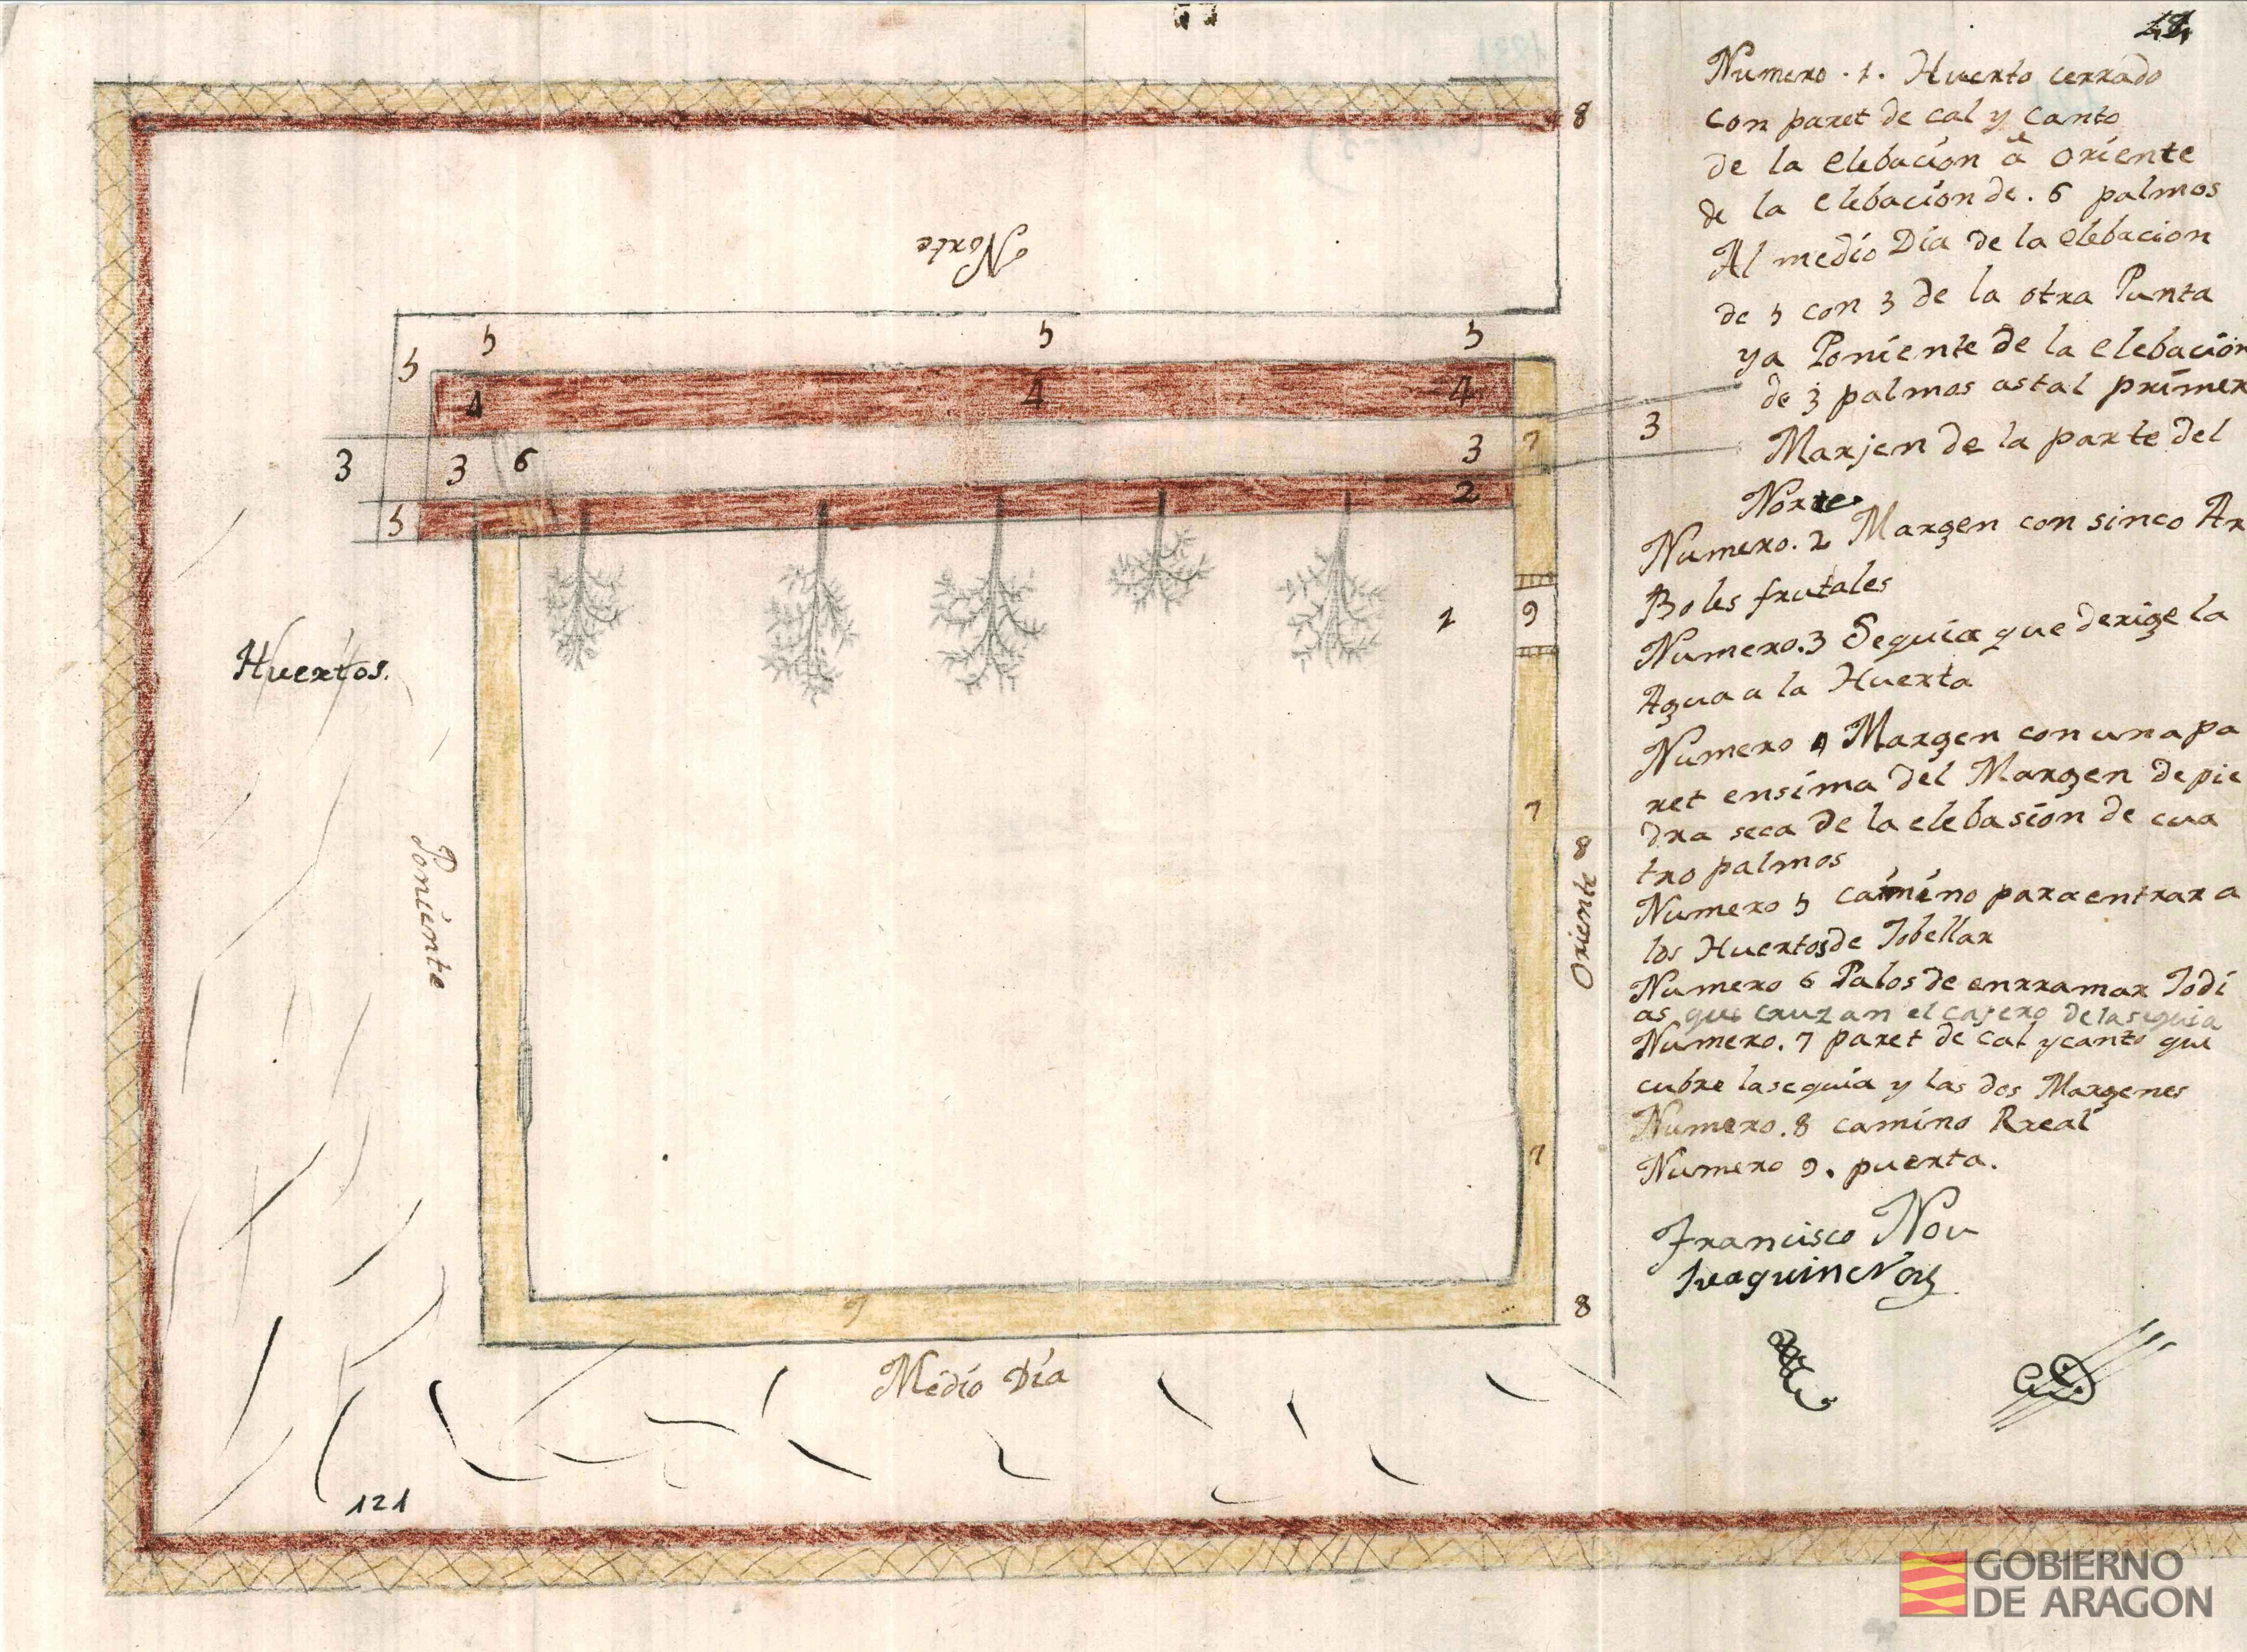 8
Norte
5 5 5
5
4 4 4
3 3 6 3 7 3
2
5
1 9
Huertos.
Poniente
7
Oriente 8
7
7
8
Medio Dia
121
Numero . 1 . Huerto cerrado
con paret de cal y canto
de la elebacion â oriente
de la elebacion de . 6 palmos
Al medio Dia de la elebacion
de 5 con 3 de la otra Punta
ya Poniente de la elebacion
de 3 palmos astal primer
Marjen de la parte del
Norte.
Numero. 2 Margen con sinco Ar
Boles frutales
Numero. 3 Sequia que derige la
Agua a la Huerta
Numero 4 Margen con una pa
ret ensima del Margen de pie
dra seca de la elebasion de cua
tro palmos
Numero 5 camino para entrar a
los Huertos de Jobellar
Numero 6 Palos de enrramar Jodi
as que cruzan el cajero de la sequia
Numero. 7 paret de cal y canto que
cubre la sequia y las dos Margenes
Numero. 8 camino Rreal
Numero 9. puerta.
Francisco Nou
Juaquin Nou
GOBIERNO
DE ARAGON